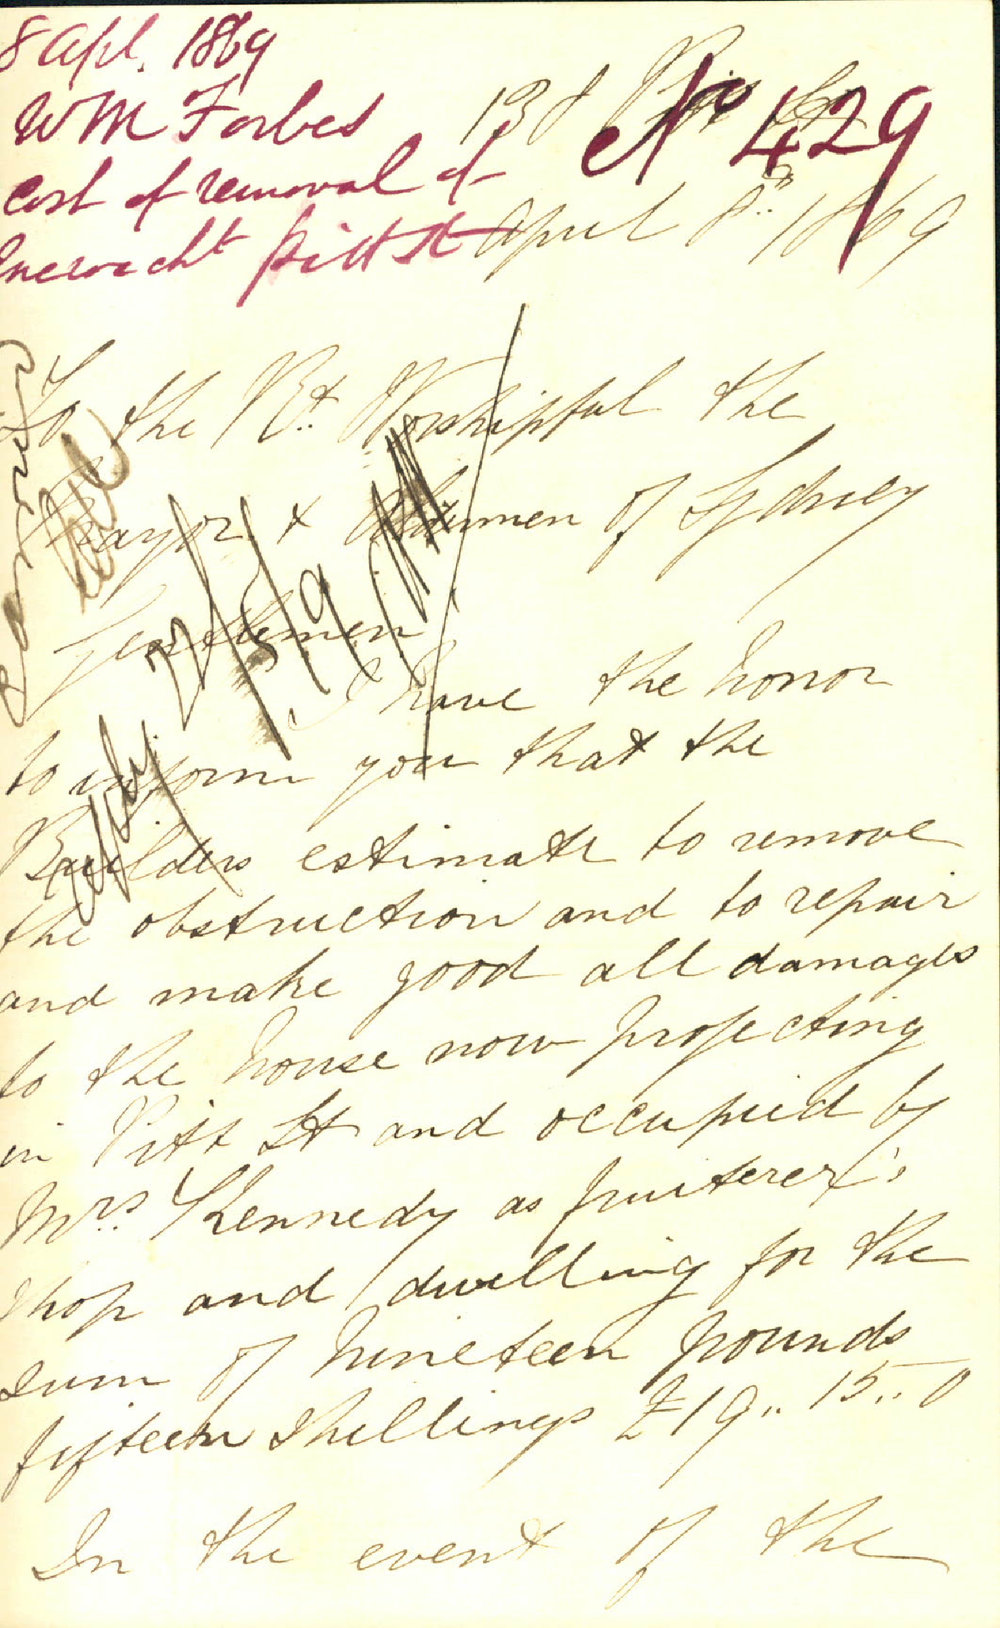 8 Apl. 1869
WM Forbes
Cost of removal of
Pitt St
No 429
138
April 8th 1869
To the Rt. Worshipful the
Mayor & Aldermen of Sydney
Gentlemen
I have the honor
to inform you that the
Builders estimate to remove
the obstruction and to repair
and make good all damages
to the house now projecting
in Pitt St and occupied by
Mrs. Kennedy as fruiterer's
shop and dwelling for the
sum of nineteen pounds
fifteen shillings £19..15..0
In the event of the